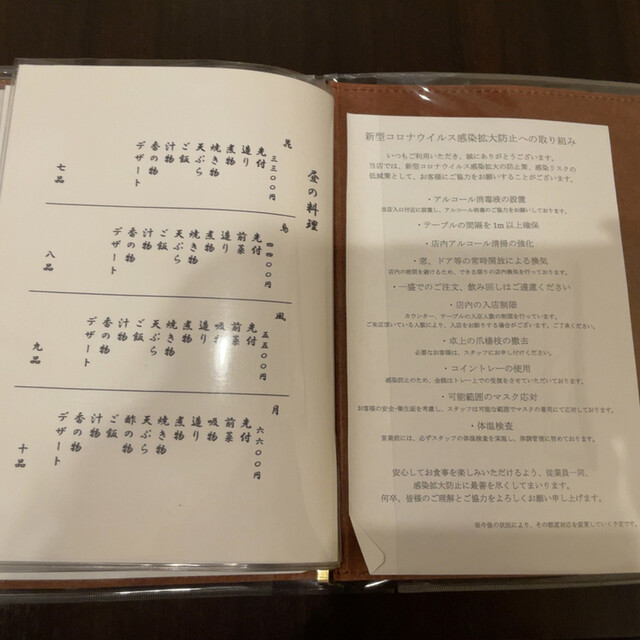 昼の料理
花
三三〇〇円
先付
造り
煮物
焼き物
天ぷら
ご飯
汁物
香の物
デザート
七品
鳥
四四〇〇円
先付
前菜
造り
煮物
焼き物
天ぷら
ご飯
汁物
香の物
デザート
八品
風
五五〇〇円
先付
前菜
吸物
造り
煮物
焼き物
天ぷら
ご飯
汁物
香の物
デザート
九品
月
六六〇〇円
先付
前菜
吸物
造り
煮物
焼き物
天ぷら
酢の物
ご飯
汁物
香の物
デザート
十品
新型コロナウイルス感染拡大防止への取り組み
いつもご利用いただき、誠にありがとうございます。
当店では、新型コロナウイルス感染拡大の防止策、感染リスクの
低減策として、お客様にご協力をお願いすることがございます。
・アルコール消毒液の設置
当店入口付近に設置し、アルコール消毒のご協力をお願いしております。
・テーブルの間隔を1m以上確保
・店内アルコール清掃の強化
・窓、ドア等の常時開放による換気
店内の密閉を避けるため、できる限りの店内換気を行っております。
・一盛でのご注文、飲み回しはご遠慮ください
・店内の入店制限
カウンター、テーブルの入店人数の制限を行っています。
ご来店頂いている人数により、入店をお断りする場合がございます。ご了承ください。
・卓上の爪楊枝の撤去
必要なお客様は、スタッフにお申し付けください。
・コイントレーの使用
感染防止のため、金銭はトレー上での受渡をさせていただいております。
・可能範囲のマスク応対
お客様の安全・衛生面を考慮し、スタッフは可能な範囲でマスクの着用にて応対しております。
・体温検査
営業前には、必ずスタッフの体温検査を実施し、体調管理に努めております。
安心してお食事を楽しみいただけるよう、従業員一同、
感染拡大防止に最善を尽くしてまいります。
何卒、皆様のご理解とご協力をよろしくお願い申し上げます。
※今後の状況により、その都度対応を変更していく予定です。